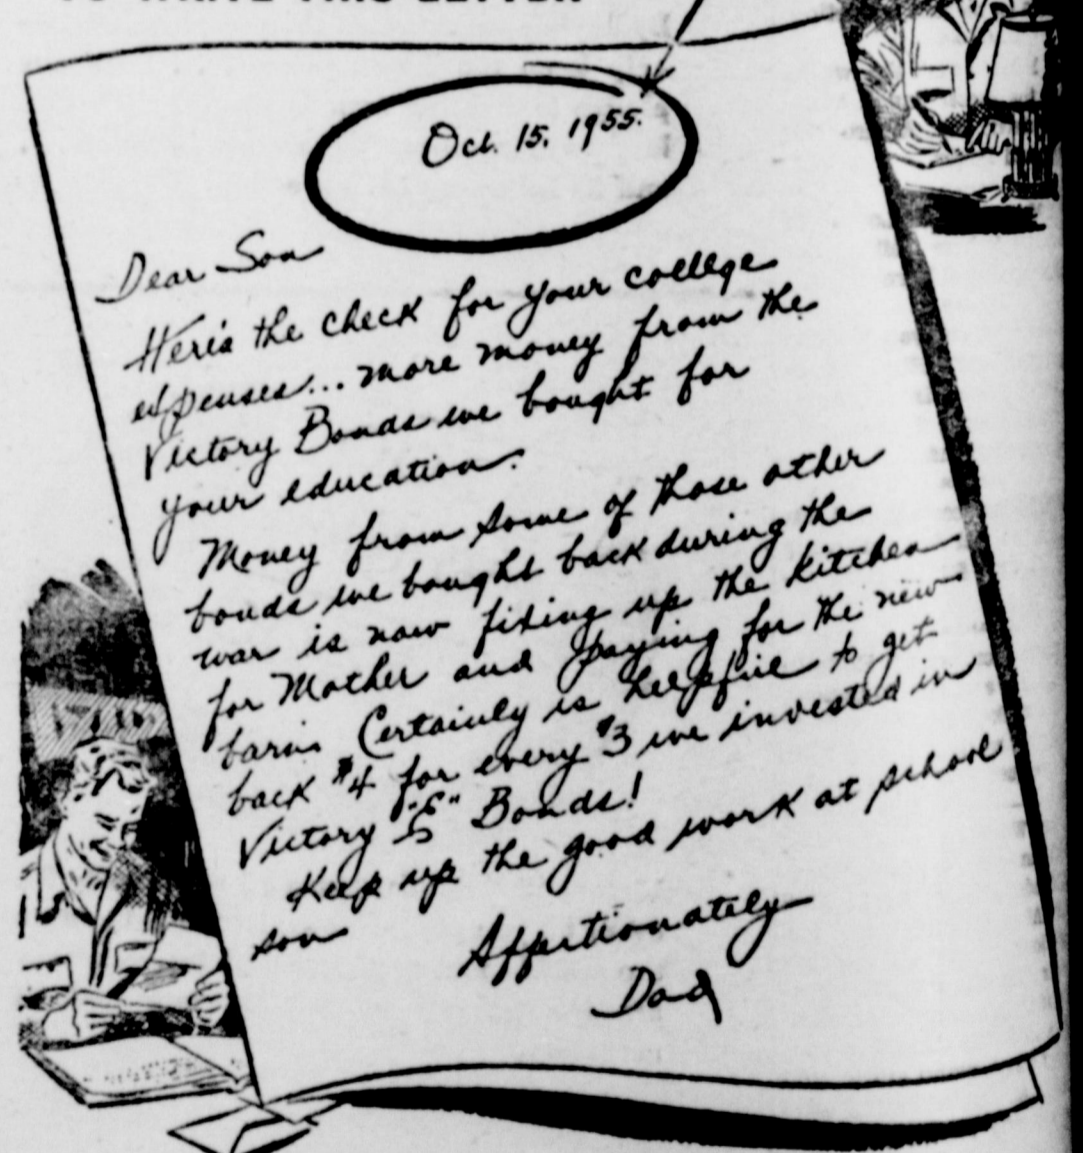 Oct. 15, 1955.
Dear Son
Here's the check for your college
expenses... more money from the
Victory Bonds we bought for
your education.
Money from some of those other
bonds we bought back during the
war is now fixing up the kitchen
for Mother and paying for the new
barn. Certainly is helpful to get
back $4 for every $3 we invested in
Victory "E" Bonds!
Keep up the good work at school
son
Affectionately
Dad